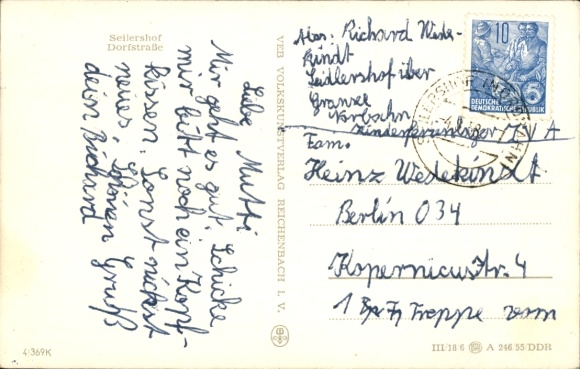 Seilershof
Dorfstraße
Liebe Mutti
Mir geht es gut. Schicke
mir bitt noch ein Kopf-
kissen. Sonst nichts
neues. Schönen Gruß
dein Richard
VEB VOLKSKUNSTVERLAG REICHENBACH I. V.
Abs. Richard Wede-
kindt
Seidlershof über
Gransee
Vorbahn
Kinderferienlager IV A
10
DEUTSCHE
DEMOKRATISCHE REPUBLIK
SEILERSHOF
Fam.
Heinz Wedekindt
Berlin 034
Kopernicusstr. 4
1 Treppe vorn
4/369K
III/18 6 A 246 55 DDR